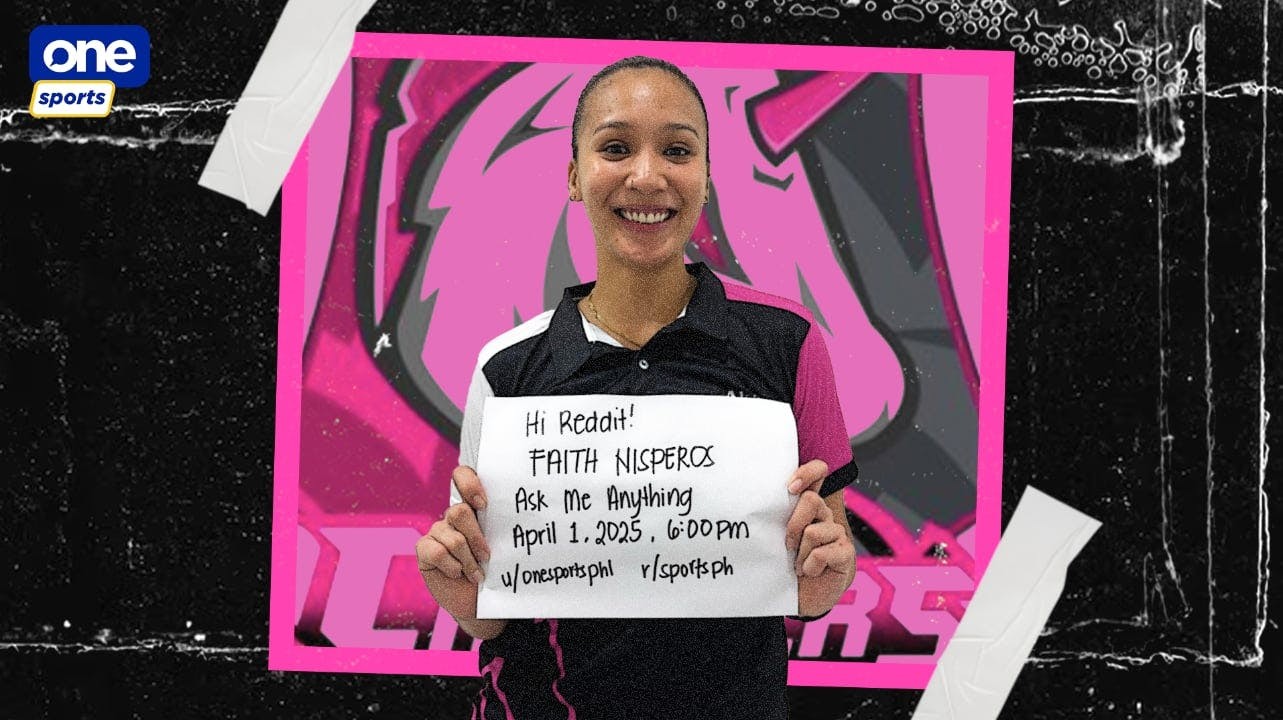 one
sports
Hi Reddit!
FAITH NISPEROS
Ask Me Anything
April 1, 2025, 6:00 PM
u/onesportsphl r/sportsph